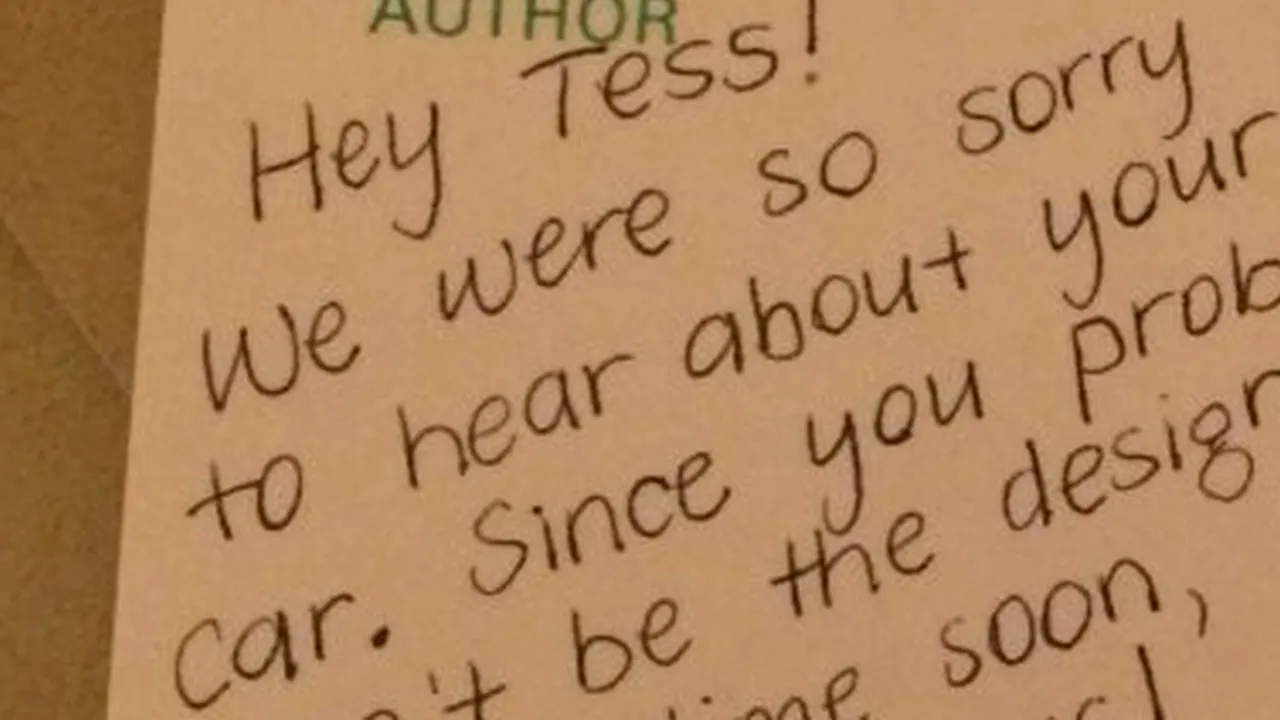 AUTHOR
Hey Tess!
We were so sorry
to hear about your
car. Since you prob
't be the design
time soon,